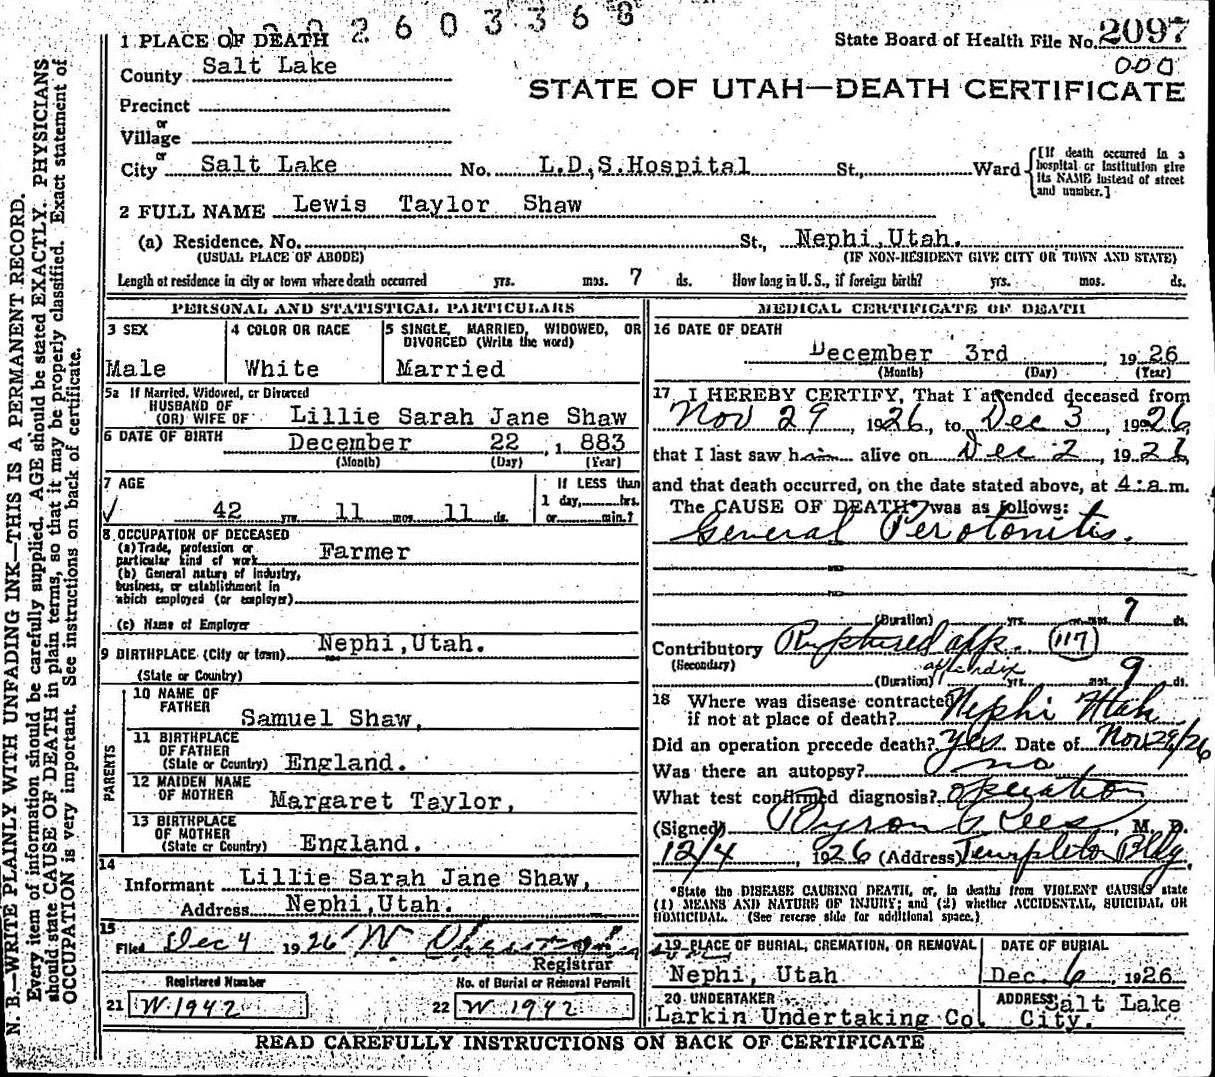 2 6 0 3 3 6 8
State Board of Health File No. 2097
000
STATE OF UTAH—DEATH CERTIFICATE
1 PLACE OF DEATH
County Salt Lake
Precinct
or
Village
or
City Salt Lake No. L.D.S.Hospital St., Ward
[If death occurred in a
hospital or institution give
its NAME instead of street
and number.]
2 FULL NAME Lewis Taylor Shaw
(a) Residence. No. St., Nephi,Utah.
(USUAL PLACE OF ABODE) (IF NON-RESIDENT GIVE CITY OR TOWN AND STATE)
Length of residence in city or town where death occurred yrs. mos. 7 ds. How long in U. S., if foreign birth? yrs. mos. ds.
PERSONAL AND STATISTICAL PARTICULARS
3 SEX
Male
4 COLOR OR RACE
White
5 SINGLE, MARRIED, WIDOWED, OR
DIVORCED (Write the word)
Married
5a If Married, Widowed, or Divorced
HUSBAND OF
(OR) WIFE OF Lillie Sarah Jane Shaw
6 DATE OF BIRTH December 22 , 1 883
(Month) (Day) (Year)
7 AGE
√ 42 yrs. 11 mos. 11 ds.
If LESS than
1 day, hrs.
or min.?
8 OCCUPATION OF DECEASED
(a) Trade, profession or
particular kind of work Farmer
(b) General nature of industry,
business, or establishment in
which employed (or employer)
(c) Name of Employer
9 BIRTHPLACE (City or town) Nephi,Utah.
(State or Country)
PARENTS
10 NAME OF
FATHER
Samuel Shaw,
11 BIRTHPLACE
OF FATHER
(State or Country) England.
12 MAIDEN NAME
OF MOTHER Margaret Taylor,
13 BIRTHPLACE
OF MOTHER
(State or Country) England.
14
Informant Lillie Sarah Jane Shaw,
Address Nephi,Utah.
15
Filed Dec 4 1926 W
Registrar
Registered Number
21 W 1942
No. of Burial or Removal Permit
22 W 1942
MEDICAL CERTIFICATE OF DEATH
16 DATE OF DEATH
December 3rd , 1926
(Month) (Day) (Year)
17 I HEREBY CERTIFY, That I attended deceased from
Nov 29 , 1926, to Dec 3 , 1926,
that I last saw him alive on Dec 2 , 1926,
and that death occurred, on the date stated above, at 4:a.m.
The CAUSE OF DEATH* was as follows:
General Perotonitis.
(Duration) yrs. mos. 7 ds.
Contributory Ruptured app. (117)
(Secondary) appendix
(Duration) yrs. mos. 9 ds.
18 Where was disease contracted
if not at place of death? Nephi Utah
Did an operation precede death? yes Date of Nov 29/26
Was there an autopsy? no
What test confirmed diagnosis? operation
(Signed) Byron Rees, M. D.
12/4 , 1926 (Address) Templeton Bldg.
*State the DISEASE CAUSING DEATH, or, in deaths from VIOLENT CAUSES state
(1) MEANS AND NATURE OF INJURY; and (2) whether ACCIDENTAL, SUICIDAL OR
HOMICIDAL. (See reverse side for additional space.)
19 PLACE OF BURIAL, CREMATION, OR REMOVAL
Nephi, Utah
DATE OF BURIAL
Dec. 6 , 1926
20 UNDERTAKER
Larkin Undertaking Co.
ADDRESS Salt Lake
City.
READ CAREFULLY INSTRUCTIONS ON BACK OF CERTIFICATE
N. B.—WRITE PLAINLY WITH UNFADING INK—THIS IS A PERMANENT RECORD.
Every item of information should be carefully supplied. AGE should be stated EXACTLY. PHYSICIANS
should state CAUSE OF DEATH in plain terms, so that it may be properly classified. Exact statement of
OCCUPATION is very important. See instructions on back of certificate.